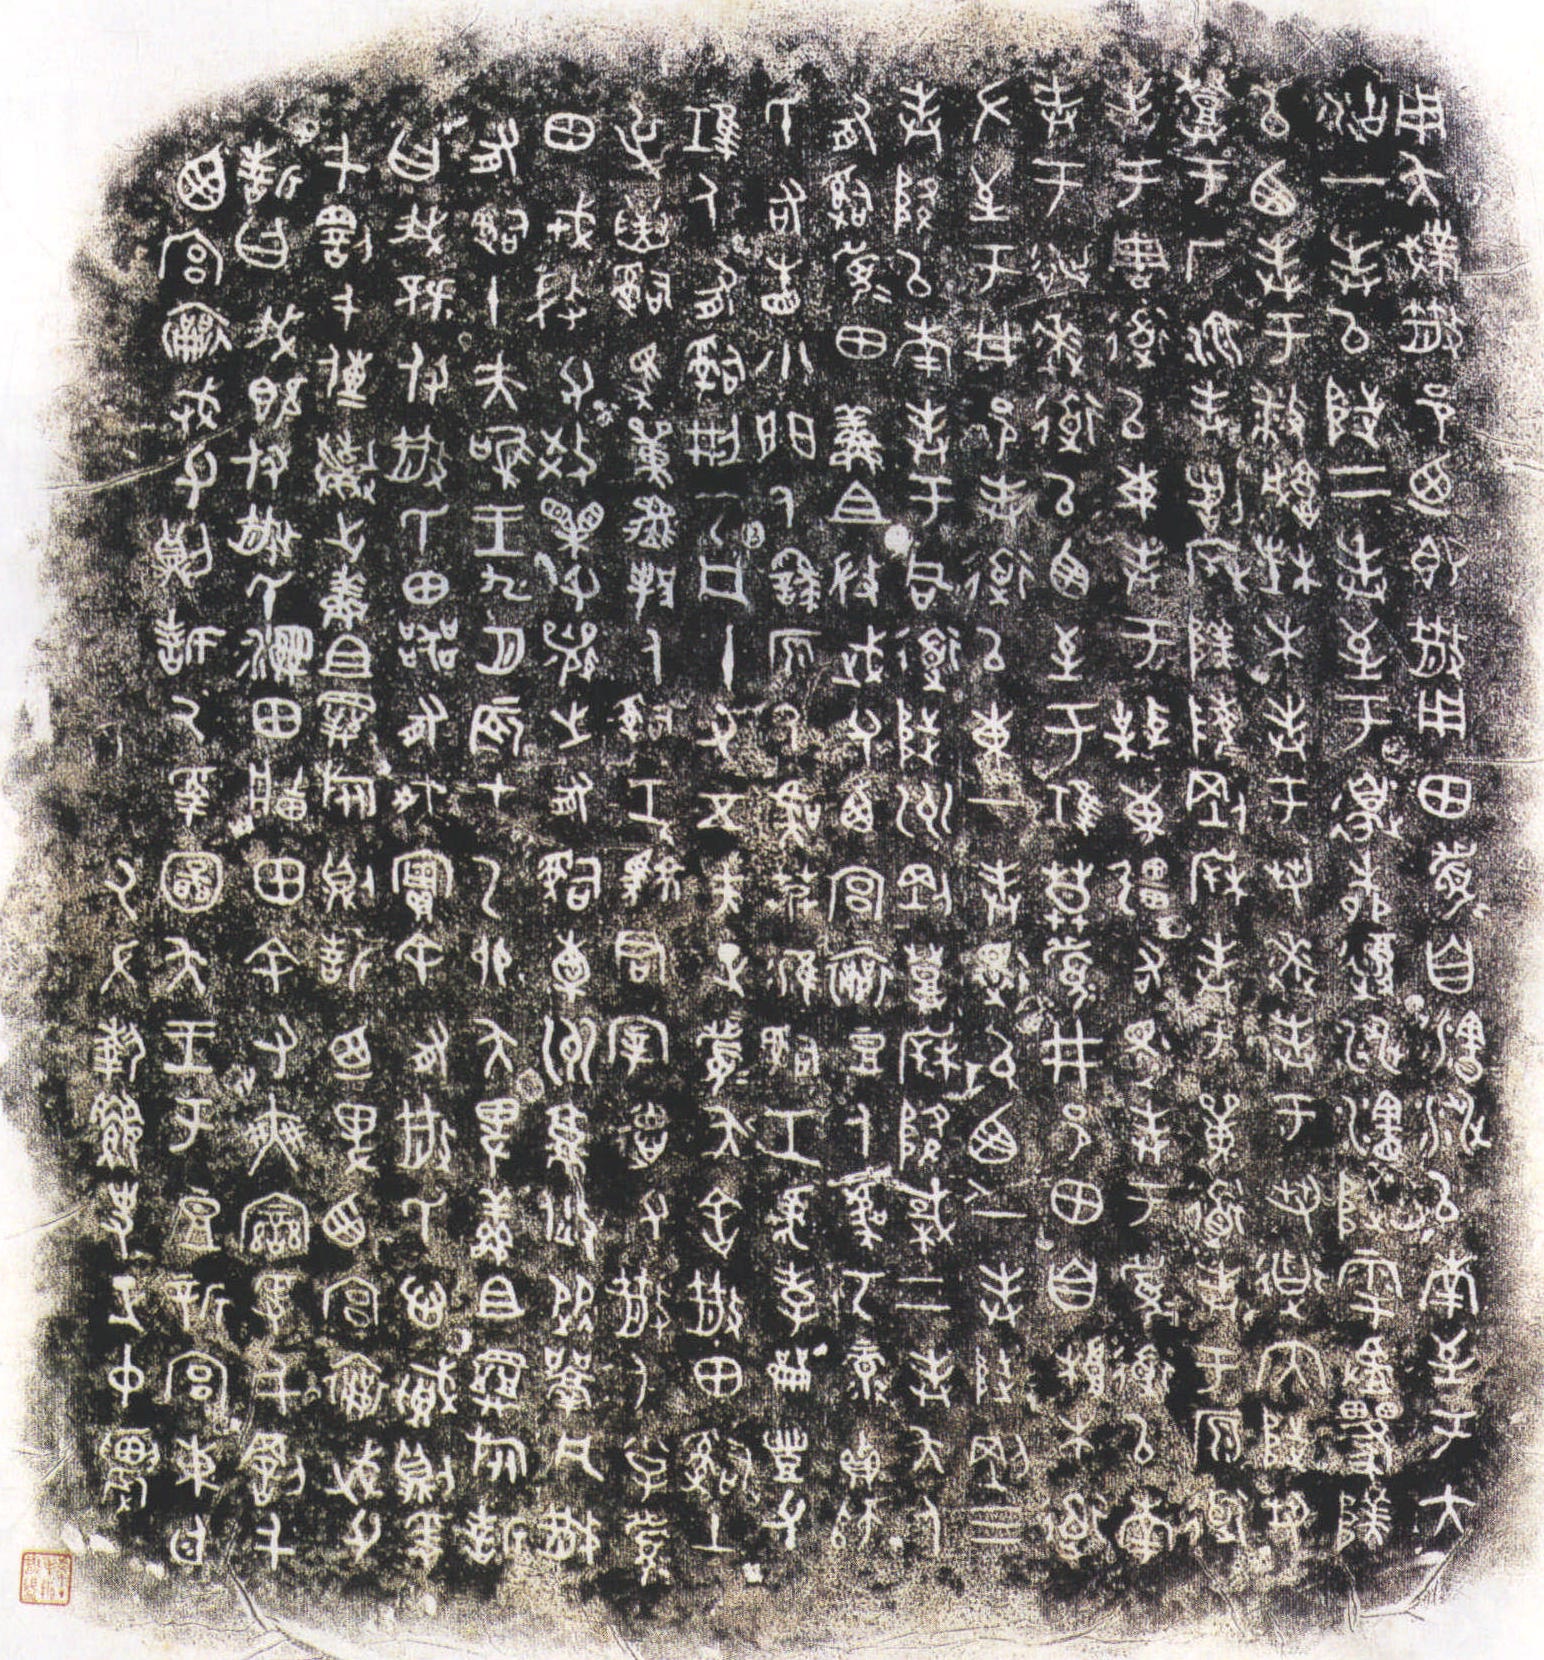 用夨𢦏散邑乃即散用田眉自瀗涉以南至于大
沽一封以陟二封至于邊柳復涉瀗陟雩𠭯邍陕
以西封于播城楮木封于芻逨封于芻道内陟芻
登于厂湶封諸𣐊陕陵剛𣐊封于單道封于原道
封于周道以東封于棹東彊右還封于眉道以南
封于逨道以西至于莫眉井邑田自根木道
左至于井邑封道以東一封還以西一封陟剛三
封降以南封于同道陟州剛登𣐊降棫二封夨人
有司眉田鮮且微武父西宮襄豆人虞丂彔貞師
氏右眚小門人繇原人虞艿淮司工虎孝豐父
人有司刑丂凡十又五夫正眉夨舍散田司土
屰寅司馬人司工君宰德父散人小子眉
田戎微父效父襄之有司橐州就焂從凡散
有司十夫唯王九月辰才乙卯夨卑鮮且旅誓
曰我既付散氏田器有爽實余有散氏心賊則爰
千罰千傳棄之鮮且旅則誓乃卑西宮襄武父
誓曰我既付散氏濕田畛田余有爽變爰千罰千
西宮襄武父則誓厥受圖夨王于豆新宮東廷
厥左執要史正中農